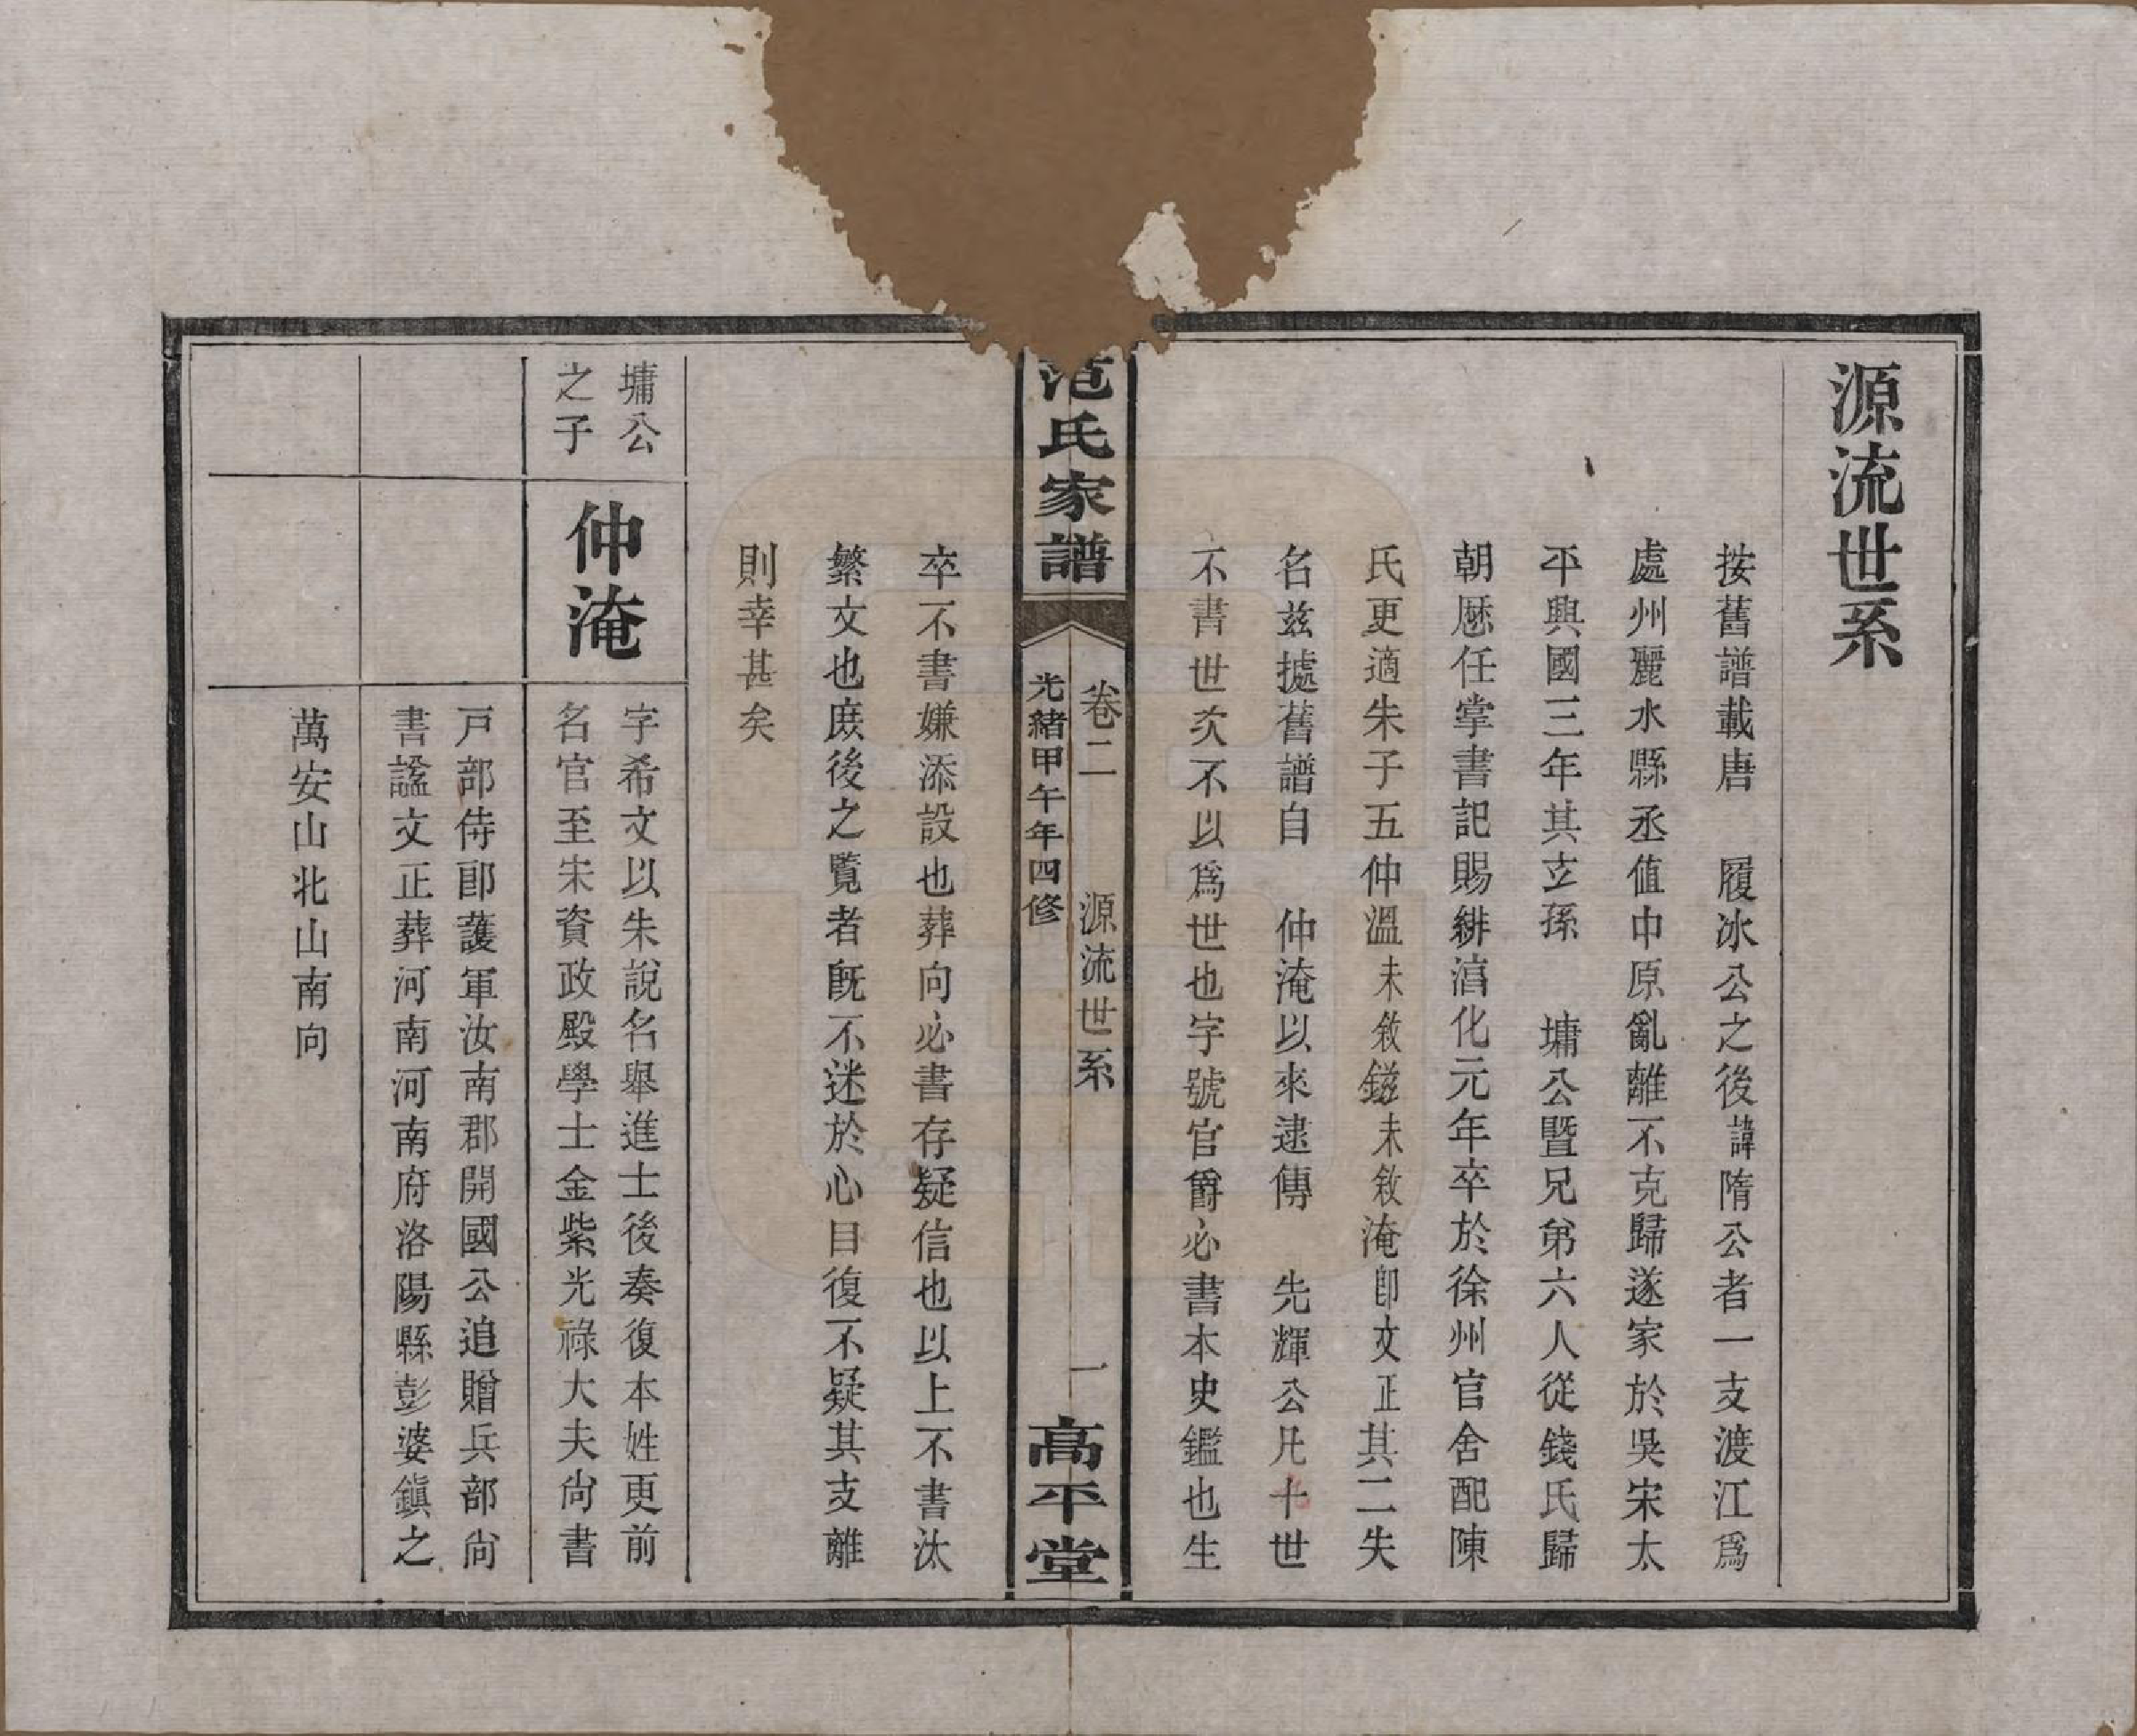 源流世系
按舊譜載唐 履冰公之後諱隋公者一支渡江爲
處州麗水縣丞值中原亂離不克歸遂家於吳宋太
平興國三年其玄孫 墉公暨兄弟六人從錢氏歸
朝歷任掌書記賜緋淯化元年卒於徐州官舍配陳
氏更適朱子五仲溫未敘鎡未敘淹卽文正其二失
名兹據舊譜自 仲淹以來逮傳 先輝公凡十世
不書世次不以爲世也字號官爵必書本史鑑也生
范氏家譜
卷二 源流世系 一
光緒甲午年四修
高平堂
卒不書嫌添設也葬向必書存疑信也以上不書汰
繁文也庶後之覽者旣不迷於心目復不疑其支離
則幸甚矣
墉公
之子
仲淹
字希文以朱說名舉進士後奏復本姓更前
名官至宋資政殿學士金紫光祿大夫尙書
戸部侍郎護軍汝南郡開國公追贈兵部尙
書諡文正葬河南河南府洛陽縣彭婆鎭之
萬安山北山南向